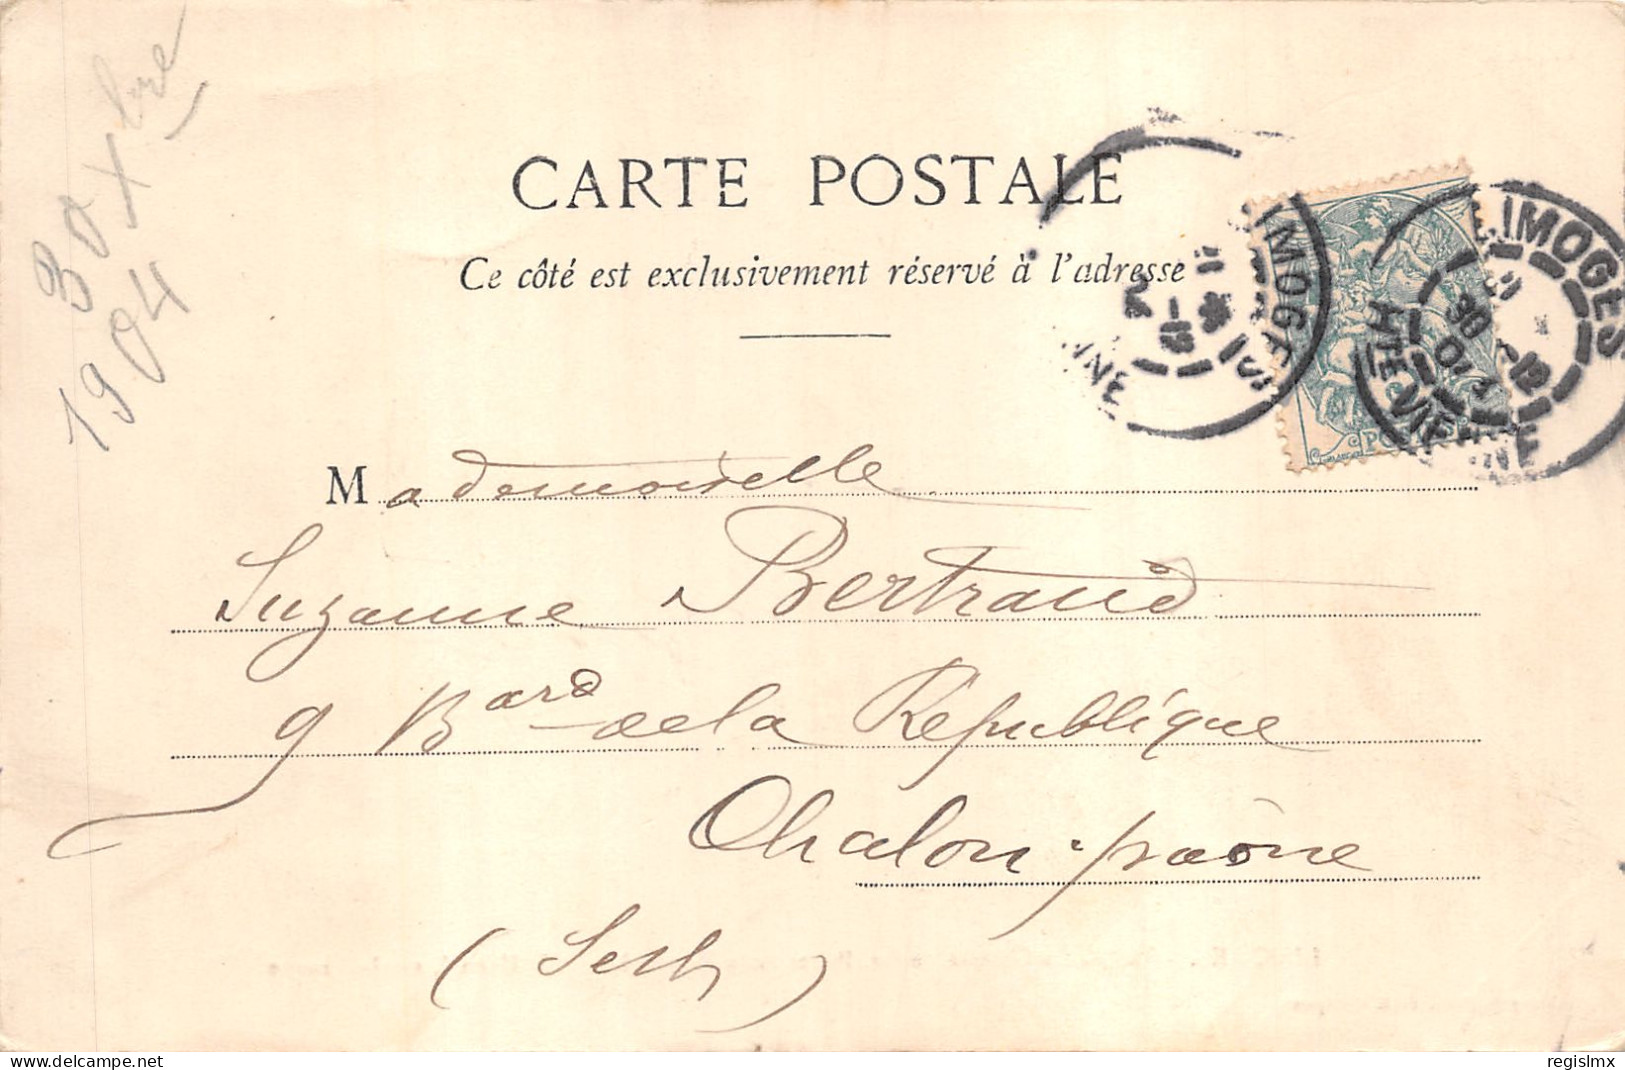 30 Xbre
1904
CARTE POSTALE
Ce côté est exclusivement réservé à l'adresse
LIMOGES
LIMOGES
30
HTE VIENNE
POSTES
Mademoiselle
Suzanne Bertrand
9 Bard de la République
Chalon s/ Saône
(S et L)
delcampe.net
regislmx